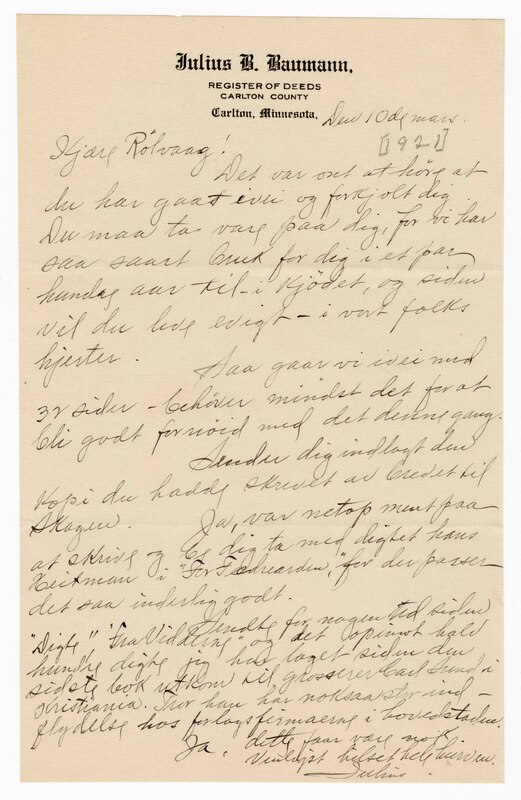 Julius B. Baumann,
REGISTER OF DEEDS
CARLTON COUNTY
Carlton, Minnesota,
Den 10de mars.
[1921]
Kjære Rölvaag!
Det var ont at höre at
du har gaat ivei og forkjolt dig
Du maa ta vare paa dig, for vi har
saa saart bruk for dig i et par
hundre aar til - i Kjödet, og siden
vil du leve evigt - i vort folks
hjerter.
Saa gaar vi ivei med
32 sider - behöver mindst det for at
bli godt fornöid med det denne gang.
Sender dig indlagt den
Kopi du hadde skrevet av Credet til
Skogen.
Ja, var netop ment paa
at skrive og be dig ta med digtet hans
Heitman i "For Fædrearven," for der passer
det saa inderlig godt.
Sendte for nogen tid siden
"Digte" "Fra Vidderne" og det openmot hald
hundre digte jeg har laget siden den
sidste bok utkom til grosserer Carl Lund i
Kristiania. Tror han har noksaa stor ind-
flydelse hos forlagsfirmaerne i hovedstaden.
Ja, dette faar være nok
Venligst hilset hele hurven.
Julius.